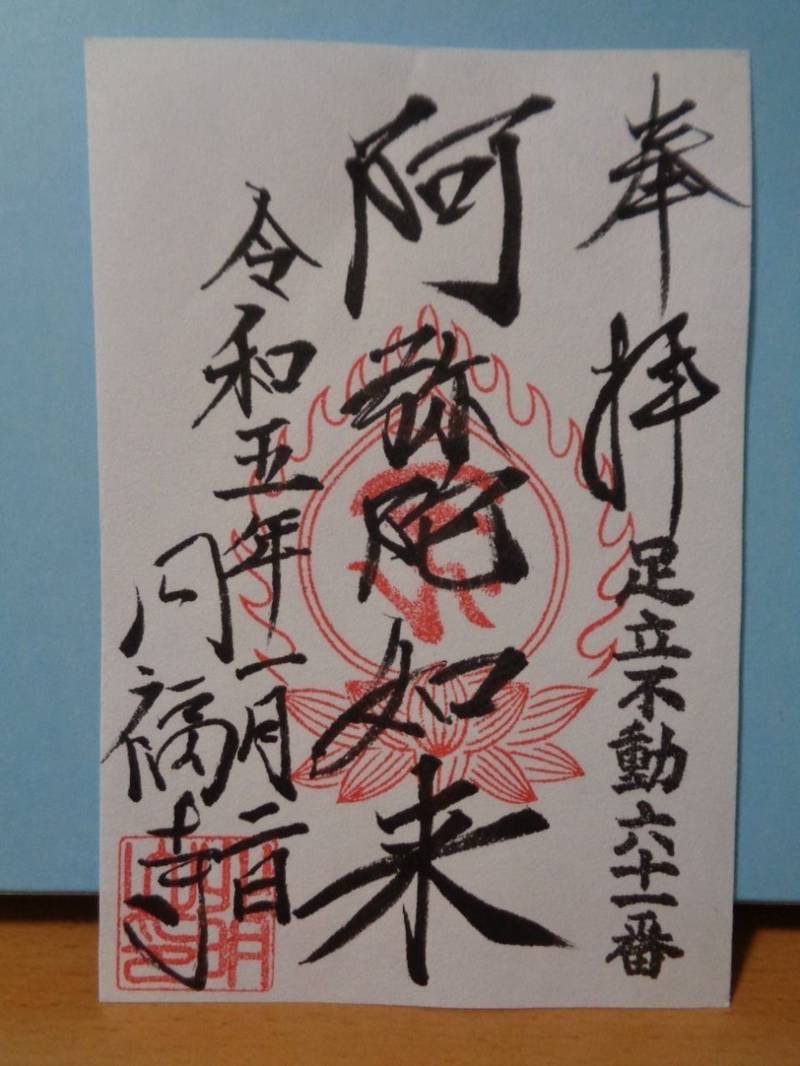 奉拝
足立不動六十一番
阿弥陀如来
令和五年一月二日
円福寺